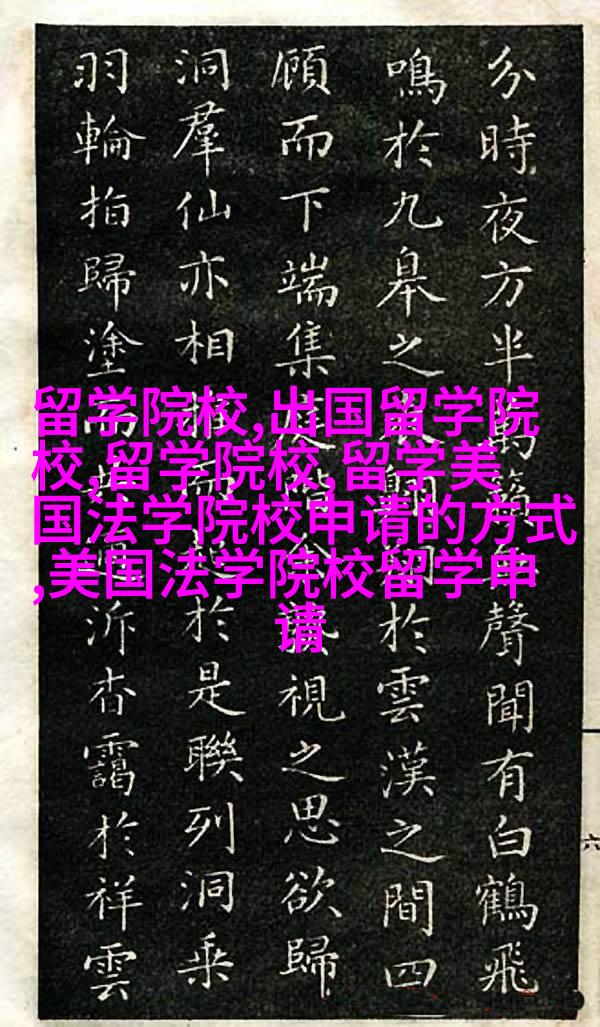 分時夜方半萬籟聲聞有白鶴飛
鳴於九皋之翔於雲漢之間四
顧而下端集視之思欲歸
洞羣仙亦相於是聯列洞乘
羽輪拍歸塗泝杳靄於祥雲
六
留学院校,出国留学院
校,留学院校,留学美
国法学院校申请的方式
,美国法学院校留学申
请